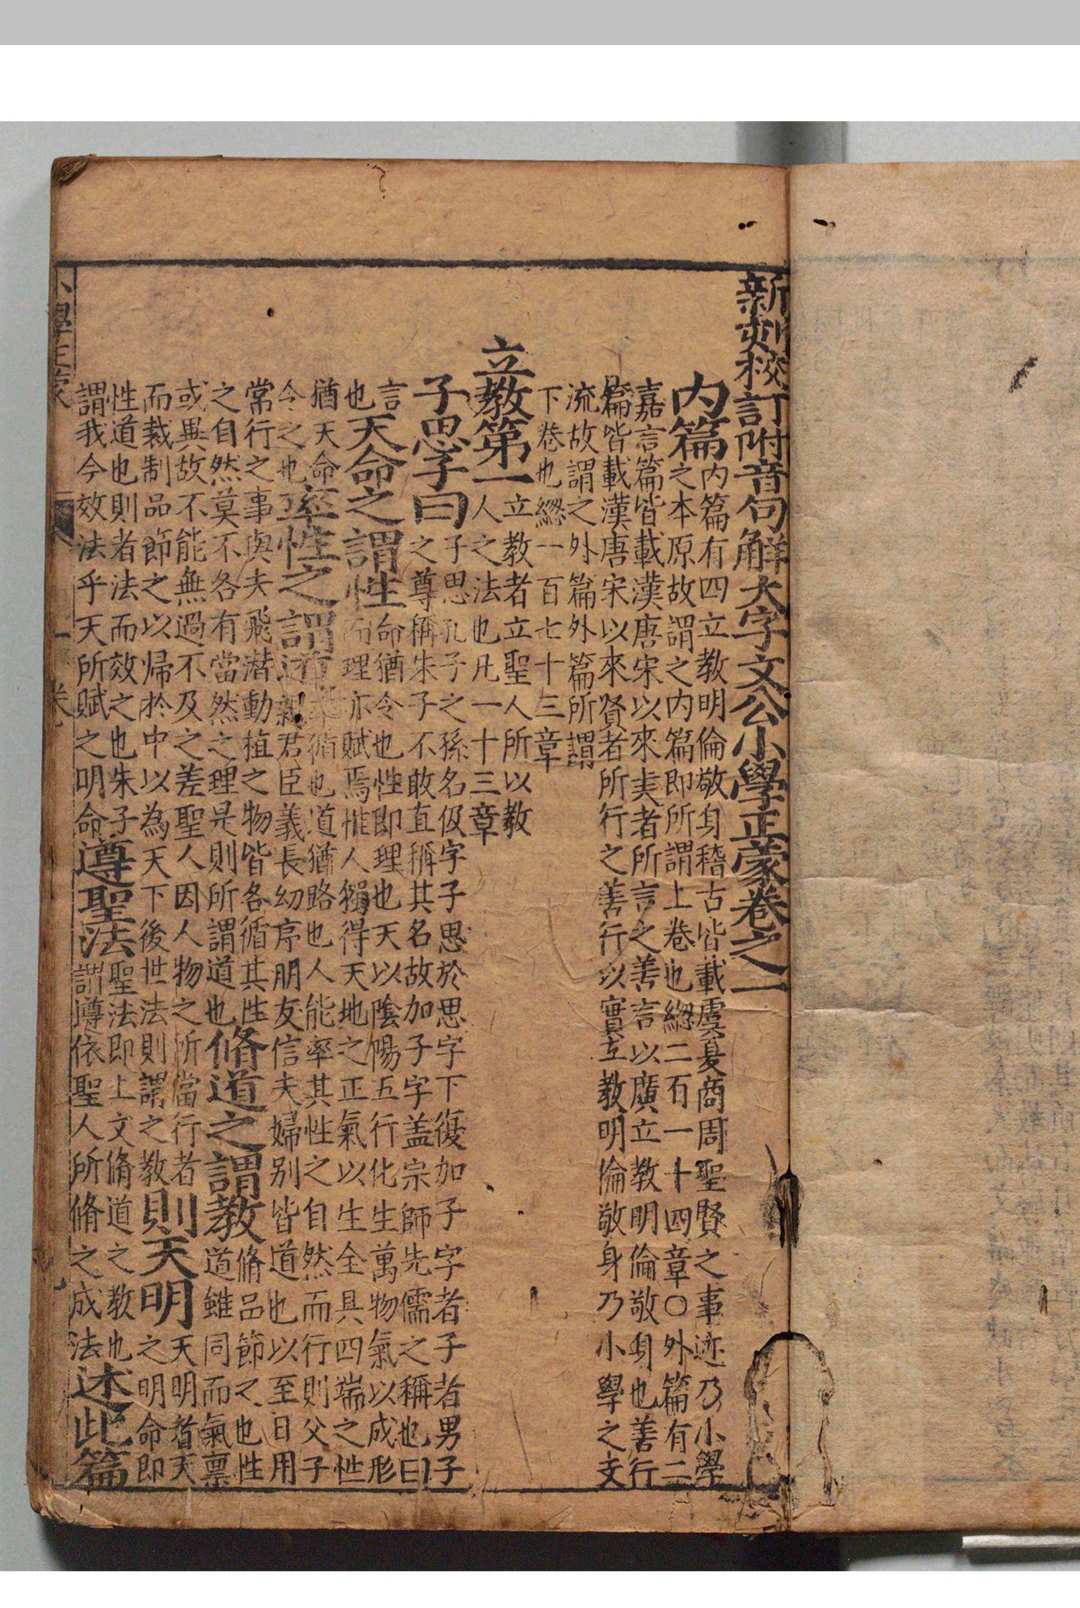 新刻校訂附音句解大字文公小學正蒙卷之一
内篇内篇有四立教明倫敬身稽古皆載虞夏商周聖賢之事迹乃小學之本原故謂之内篇即所謂上卷也緫二百一十四章○外篇有二
嘉言篇皆載漢唐宋以來賢者所言之善言以廣立教明倫敬身也善行篇皆載漢唐宋以來賢者所行之善行以實立教明倫敬身乃小學之支
流故謂之外篇外篇所謂下卷也緫一百七十三章
立教第一立教者立聖人所以教人之法也凡一十三章
子思子曰子思孔子之孫名伋字子思於思字下復加子字者子者男子之尊稱朱子不敢直稱其名故加子字盖宗師先儒之稱也曰
言也天命之謂性命猶令也性即理也天以陰陽五行化生萬物氣以成形而理亦賦焉惟人獨得天地之正氣以生全具四端之性
猶天命今之也率性之謂道率循也道猶路也人能率其性之自然而行則父子親君臣義長幼序朋友信夫婦別皆道也以至日用
常行之事與夫飛潛動植之物皆各循其性之自然莫不各有當然之理是則所謂道也脩道之謂教脩品節之也性道雖同而氣禀
或異故不能無過不及之差聖人因人物之所當行者而裁制品節之以歸於中以為天下後世法則謂之教則天明天明者天之明命即
性道也則者法而效之也朱子謂我今效法乎天所賦之明命遵聖法聖法即上文脩道之教也謂遵依聖人所脩之成法述此篇
小學正蒙 卷一